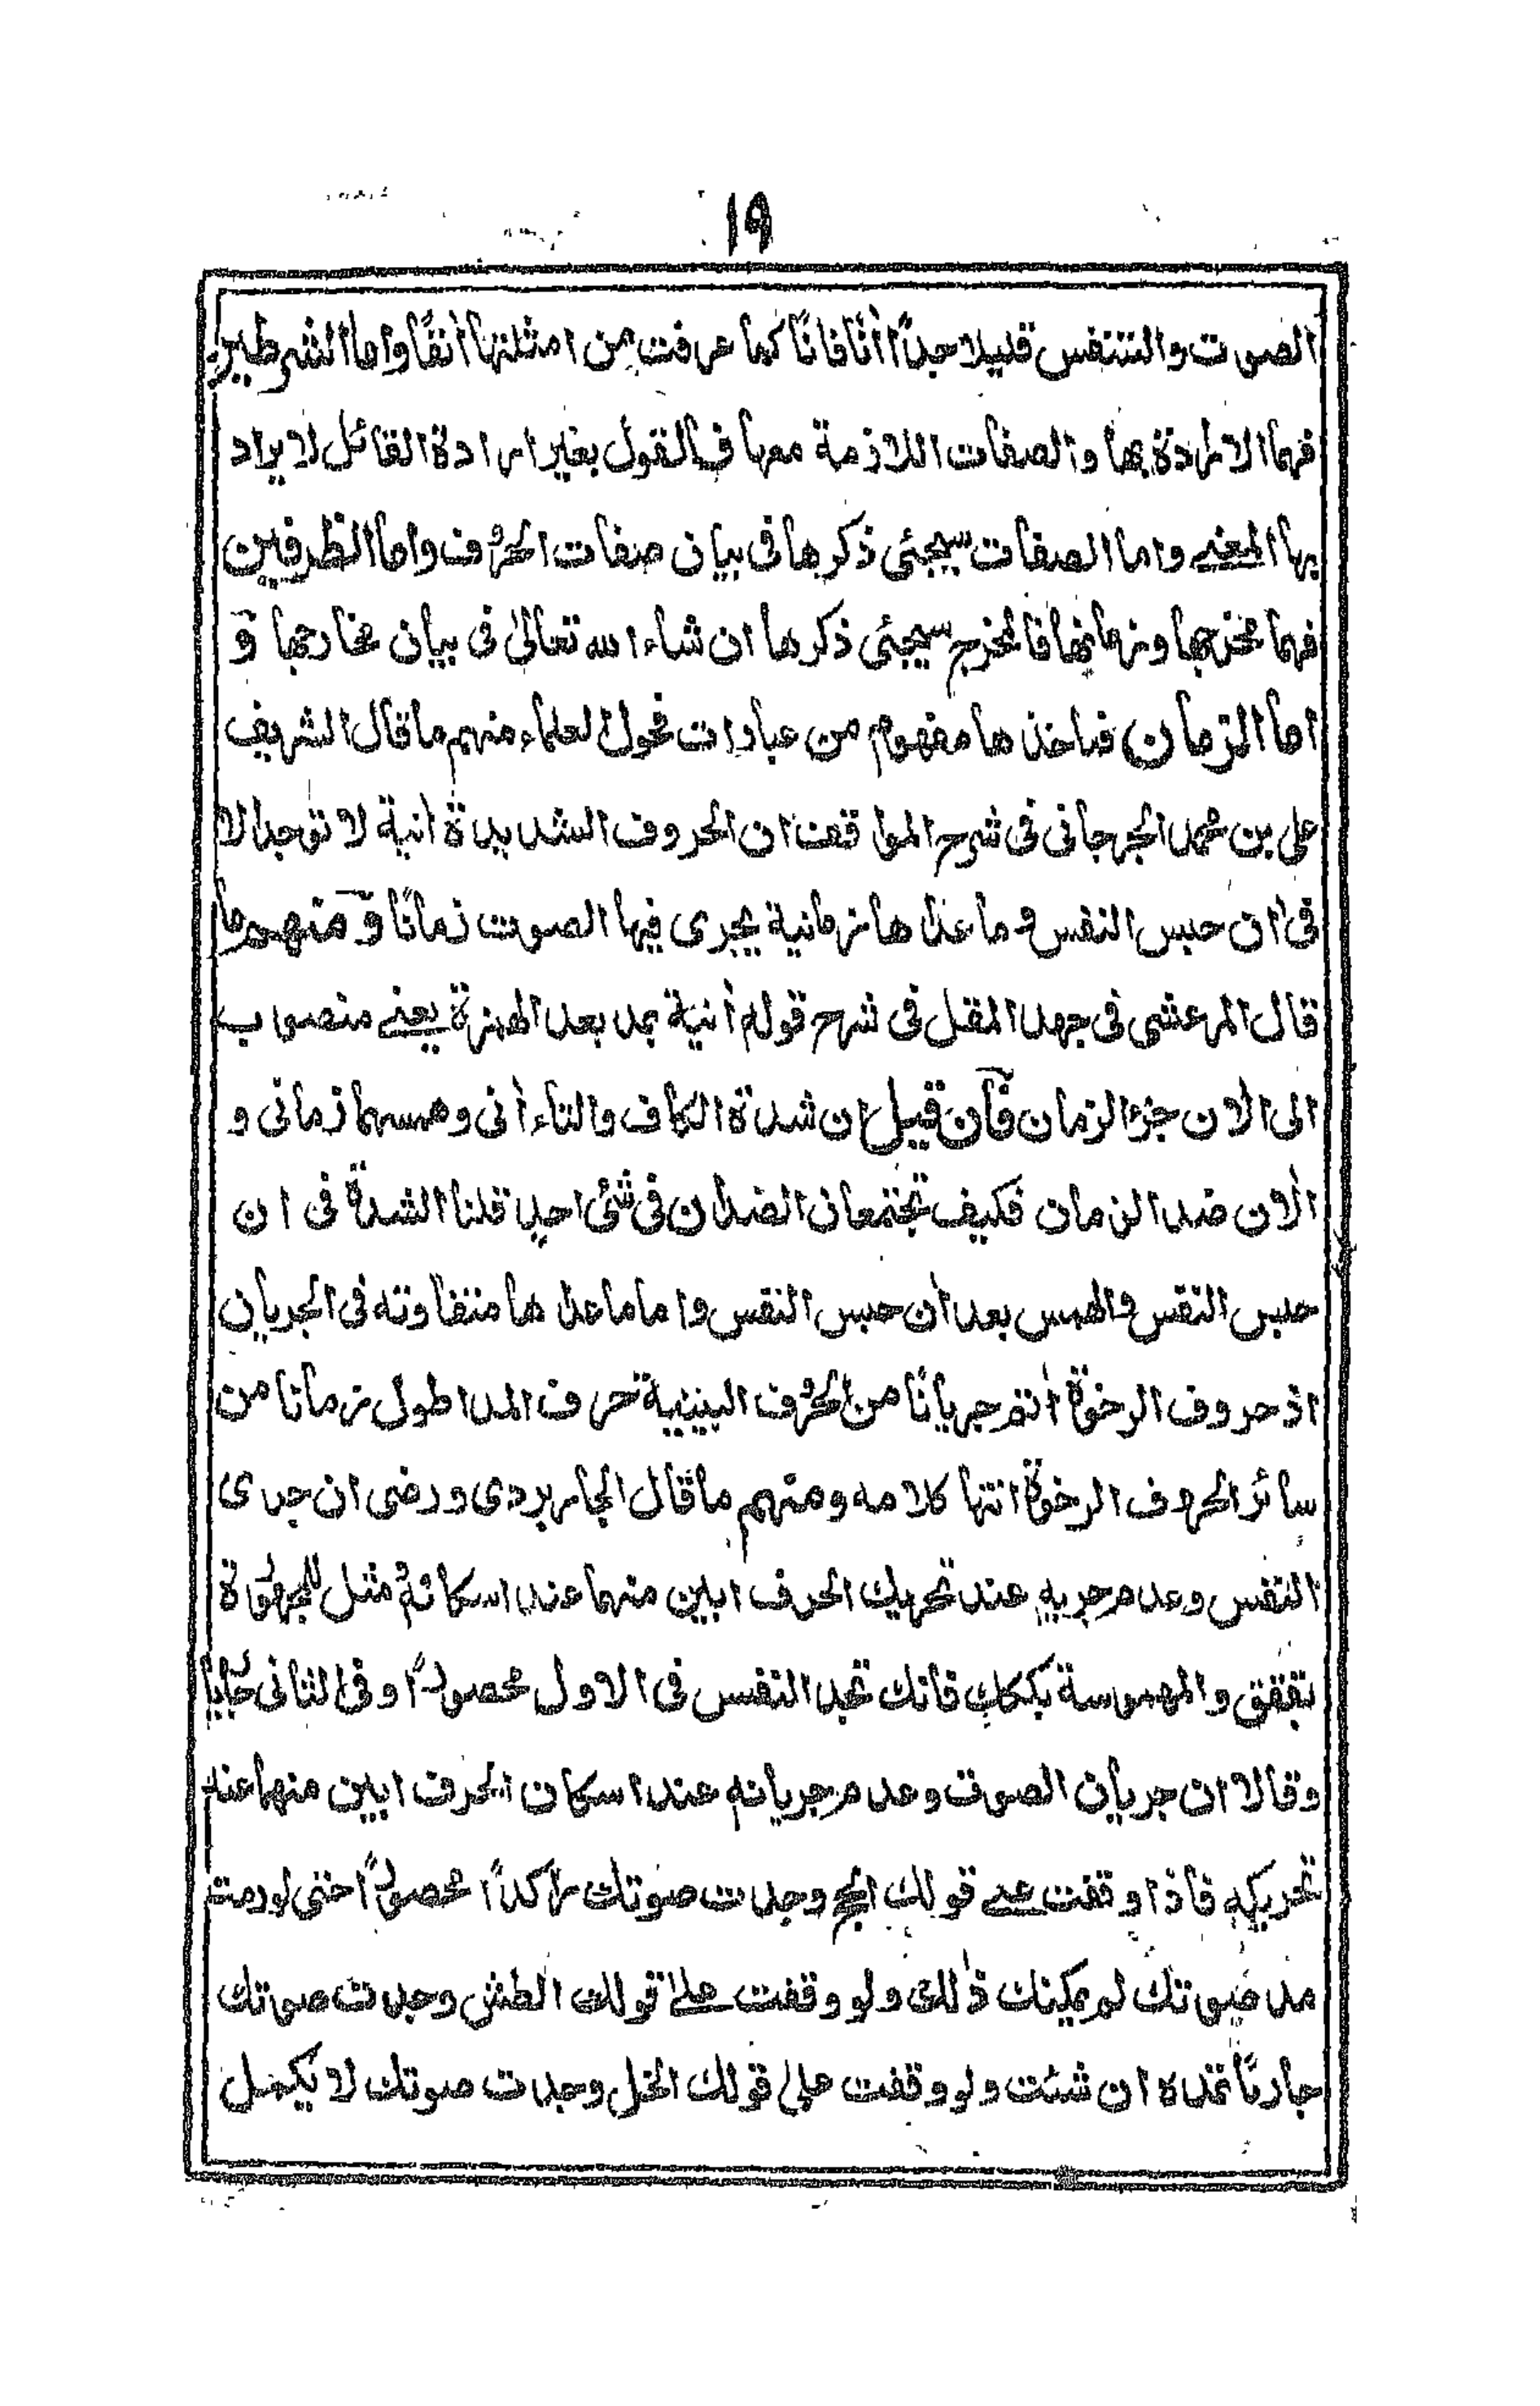 ١٩
الصوت والتنفس قليلا جدًّا اٰنًا فاٰنًا كما عرفت من امثلتها اٰنفًا واما الشرطين
فهما الارادة بها والصفات اللازمة معها فى القول بغير ارادة القائل لا يراد
بها المغيه واما الصفات سيجئى ذكرها فى بيان صفات الحرُوف واما الظرفين
فهما مخرجها وزمانها فالمخرج سيجئى ذكرها ان شاء الله تعالىٰ فى بيان مخارجها و
اما الزمان فماخذها مفهوم من عبارات فحول العلماء منهم ما قال الشريف
على بن محمد الجرجانى فى شرح المواقف ان الحروف الشديدة اٰنية لا توجد الا
فى اٰن حبس النفس وما عداها زمانية يجرى فيها الصوت زمانًا و منهم ما
قال المرعشى فى جهد المقل فى شرح قوله اٰنية بمد بعد الهمزة يعنے منصوب
الى الاٰن جزء الزمان فان قيل ان شدة الكاف والتاء اٰنى وهمسهما زمانى و
الاٰن ضد الزمان فكيف تجتمعان الضدان فى شئى احدٍ قلنا الشدة فى ان
حبس النفس والهمس بعد اٰن حبس النفس واما ما عداها متفاوته فى الجريان
اذ حروف الرخوة اتم جريانًا من الحرُوف البينية حروف المد اطول زمانا من
سائر الحروف الرخوة انتها كلامه ومنهم ما قال الجاربردى ورضى ان جرى
النفس وعدم جريهٖ عند تحريك الحرف ابين منهما عند اسكانهٖ مثل المجهورة
بققق والمهموسة بككك فانك تجد النفس فى الاول محصورًا وفى الثانى جاريا
وقالا ان جريان الصوت وعدم جريانهٖ عند اسكان الحرف ابين منهما عند
تحريكهٖ فاذا وقفت علے قولك الحج وجدت صوتك راكدًا محصورًا حتى لو رمت
مد صوتك لم يمكنك ذٰلك ولو وقفت علےٰ قولك الطش وجدت صوتك
جاريًا تمده ان شئت ولو وقفت علىٰ قولك الخل وجدت صوتك لا يكمل